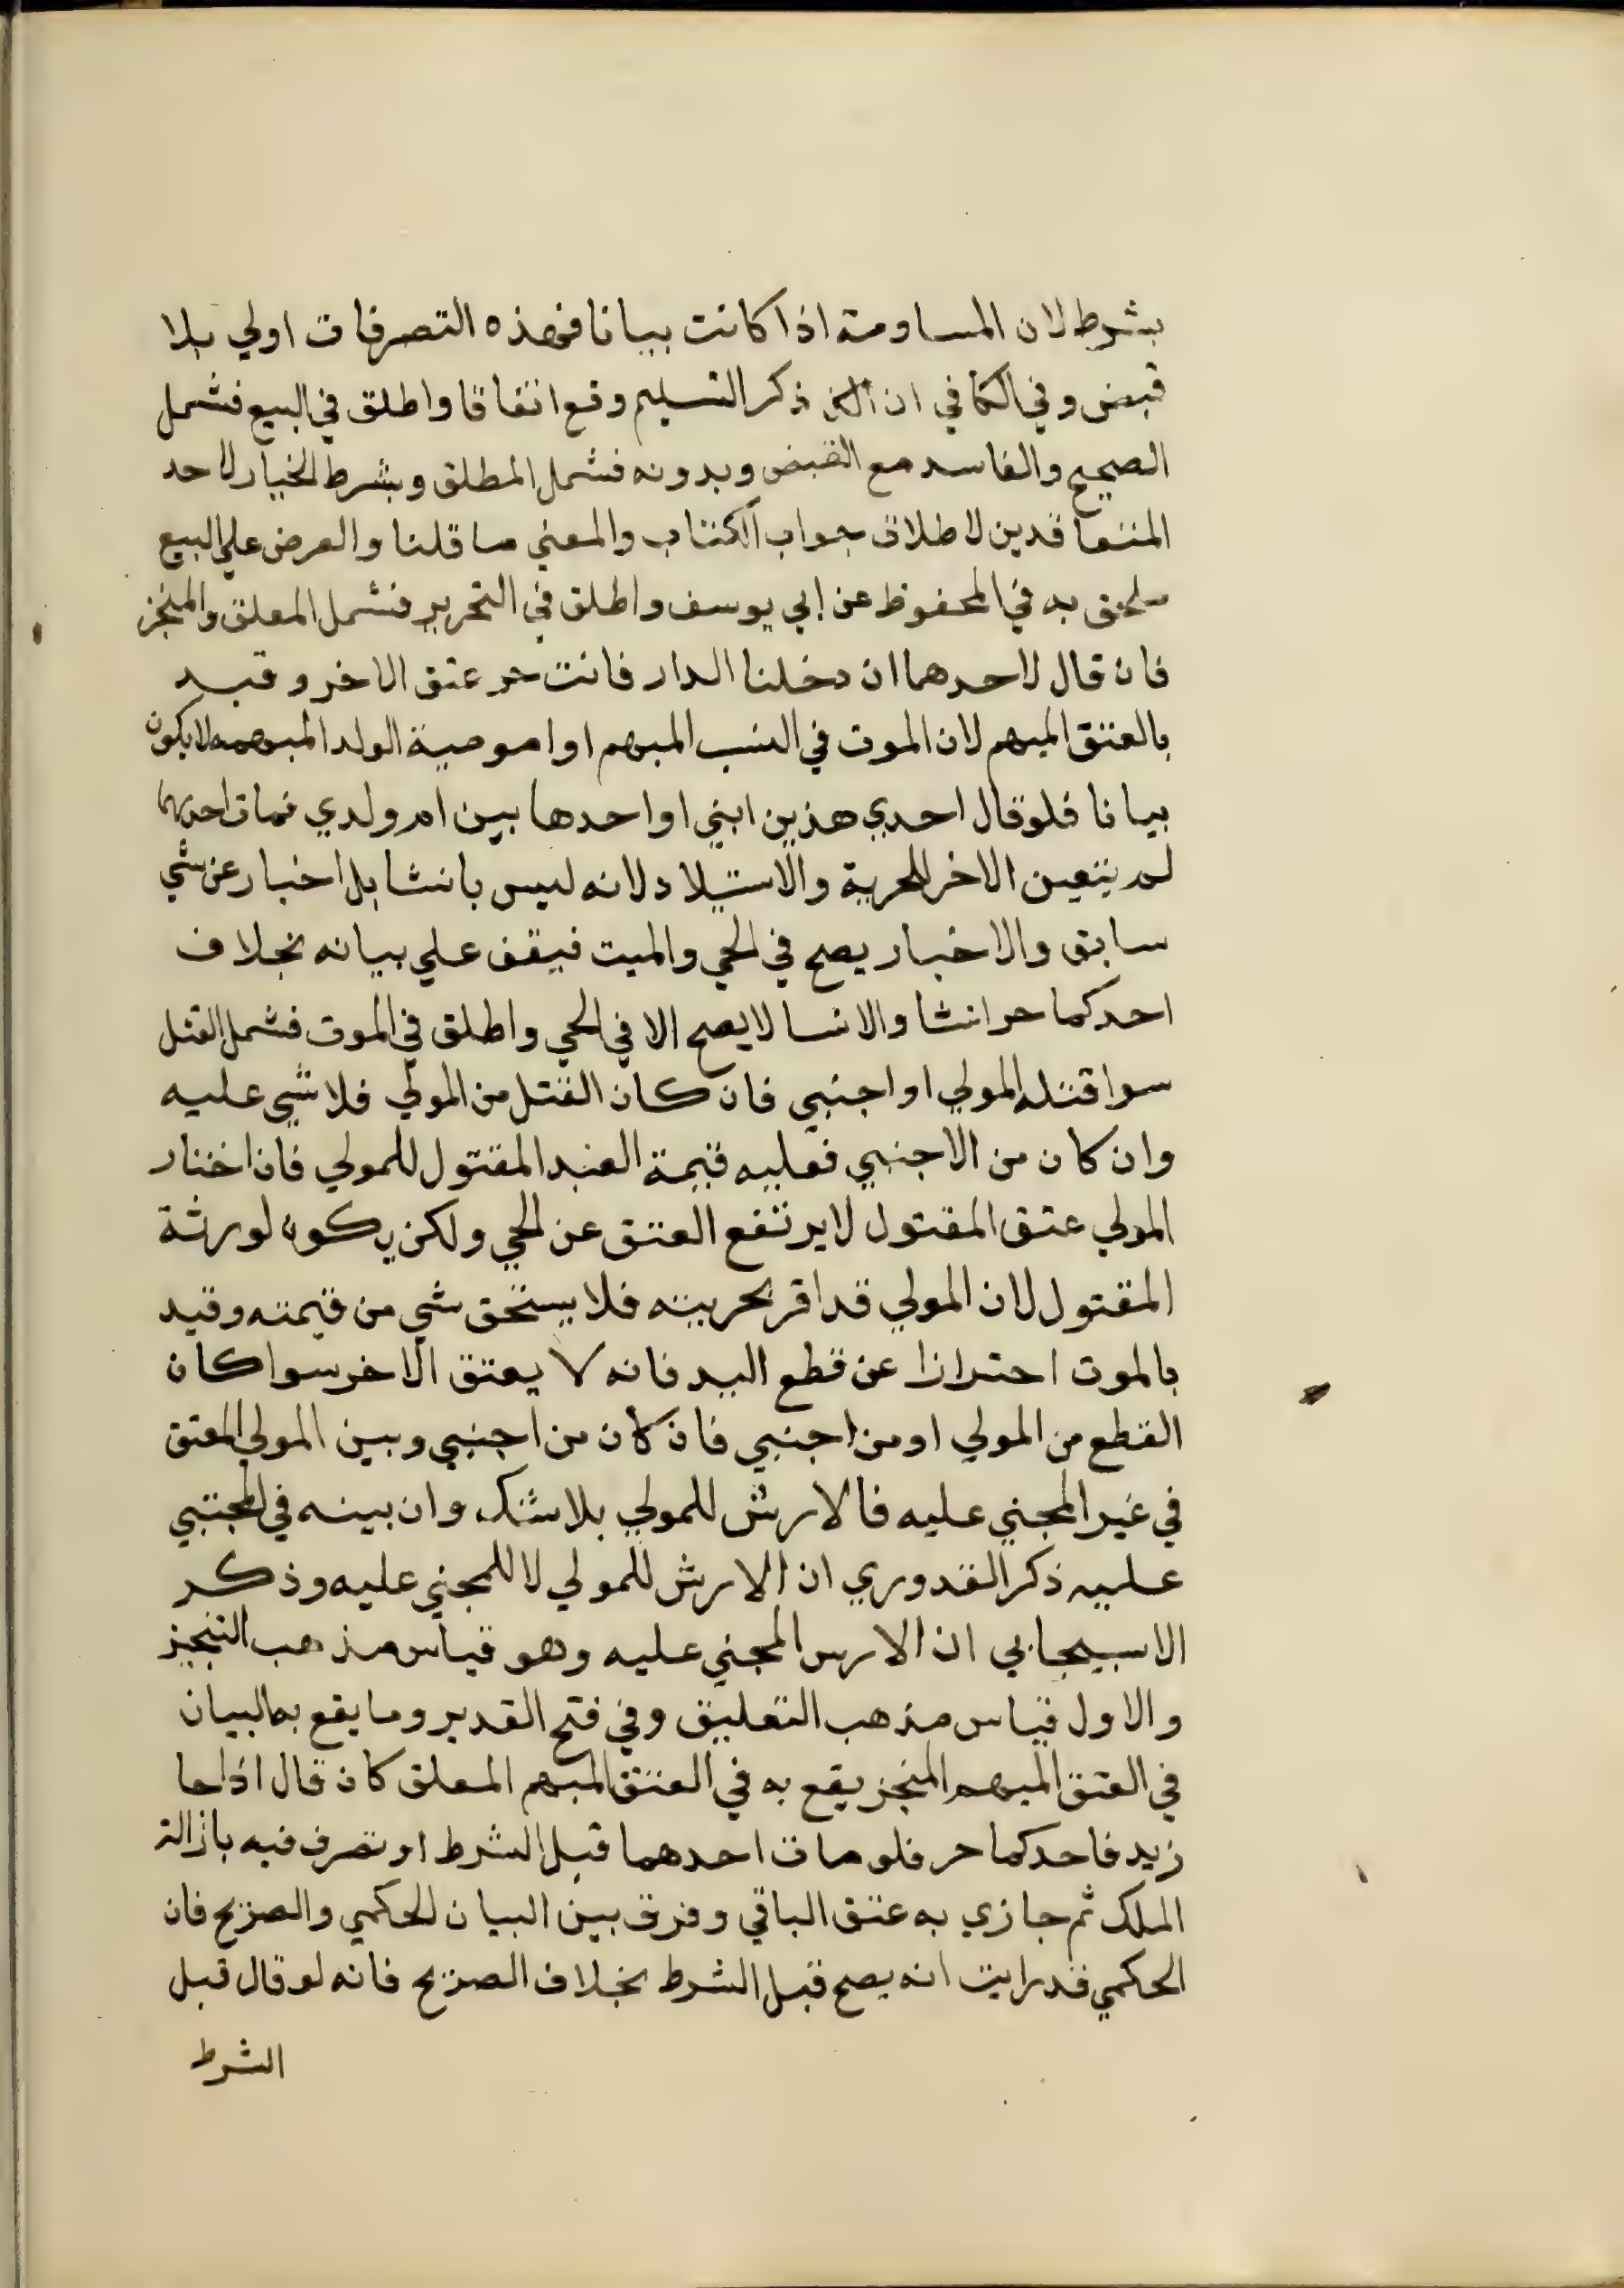 بشرط لان المساومة اذا كانت بيانا فهذه التصرفات اولي بلا
قبض وفي الكافي ان ذكر التسليم وقع اتفاقا واطلق في البيع فشمل
الصحيح والفاسد مع القبض وبدونه فشمل المطلق وبشرط الخيار لاحد
المتعاقدين لاطلاق جواب الكتاب والمعني ما قلنا والعرض علي البيع
ملحق به في المحفوظ عن ابي يوسف واطلق في التحرير فشمل المعلق والمنجز
فان قال لاحدهما ان دخلنا الدار فانت حر عتق الاخر وقيد
بالعتق المبهم لان الموت في النسب المبهم او امومية الولد المبهمه لا يكون
بيانا فلو قال احدي هذين ابني او احدها بين ام ولدي فمات احديهما
لم يتعين الاخر للحرية والاستيلاد لانه ليس بانشا بل اخبار عن شي
سابق والاخبار يصح في الحي والميت فيقف علي بيانه بخلاف
احدكما حر انشا والانسا لا يصح الا في الحي واطلق في الموت فشمل القتل
سوا قتله المولي او اجنبي فان كان القتل من المولي فلا شي عليه
وان كان من الاجنبي فعليه قيمة العبد المقتول للمولي فان اختار
المولي عتق المقتول لا يرتفع العتق عن الحي ولكن يكون لورثة
المقتول لان المولي قد اقر بحريته فلا يستحق شي من قيمته وقيد
بالموت احترازا عن قطع اليد فانه لا يعتق الاخر سوا كان
القطع من المولي او من اجنبي فان كان من اجنبي وبين المولي العتق
في غير المجني عليه فالارش للمولي بلا شك وان بينه في المجنبي
عليه ذكر القدوري ان الارش للمولي لا للمجني عليه وذكر
الاسبيجابي ان الارس المجني عليه وهو قياس مذهب التنجيز
والاول قياس مذهب التعليق وفي فتح القدير وما يقع به البيان
في العتق المبهم المنجز يقع به في العتق المبهم المعلق كان قال اذا جا
زيد فاحدكما حر فلو مات احدهما قبل الشرط او تصرف فيه بازالة
الملك ثم جا زي به عتق الباقي وفرق بين البيان الحكمي والصريح فان
الحكمي قد رايت انه يصح قبل الشرط بخلاف الصريح فانه لو قال قبل
الشرط